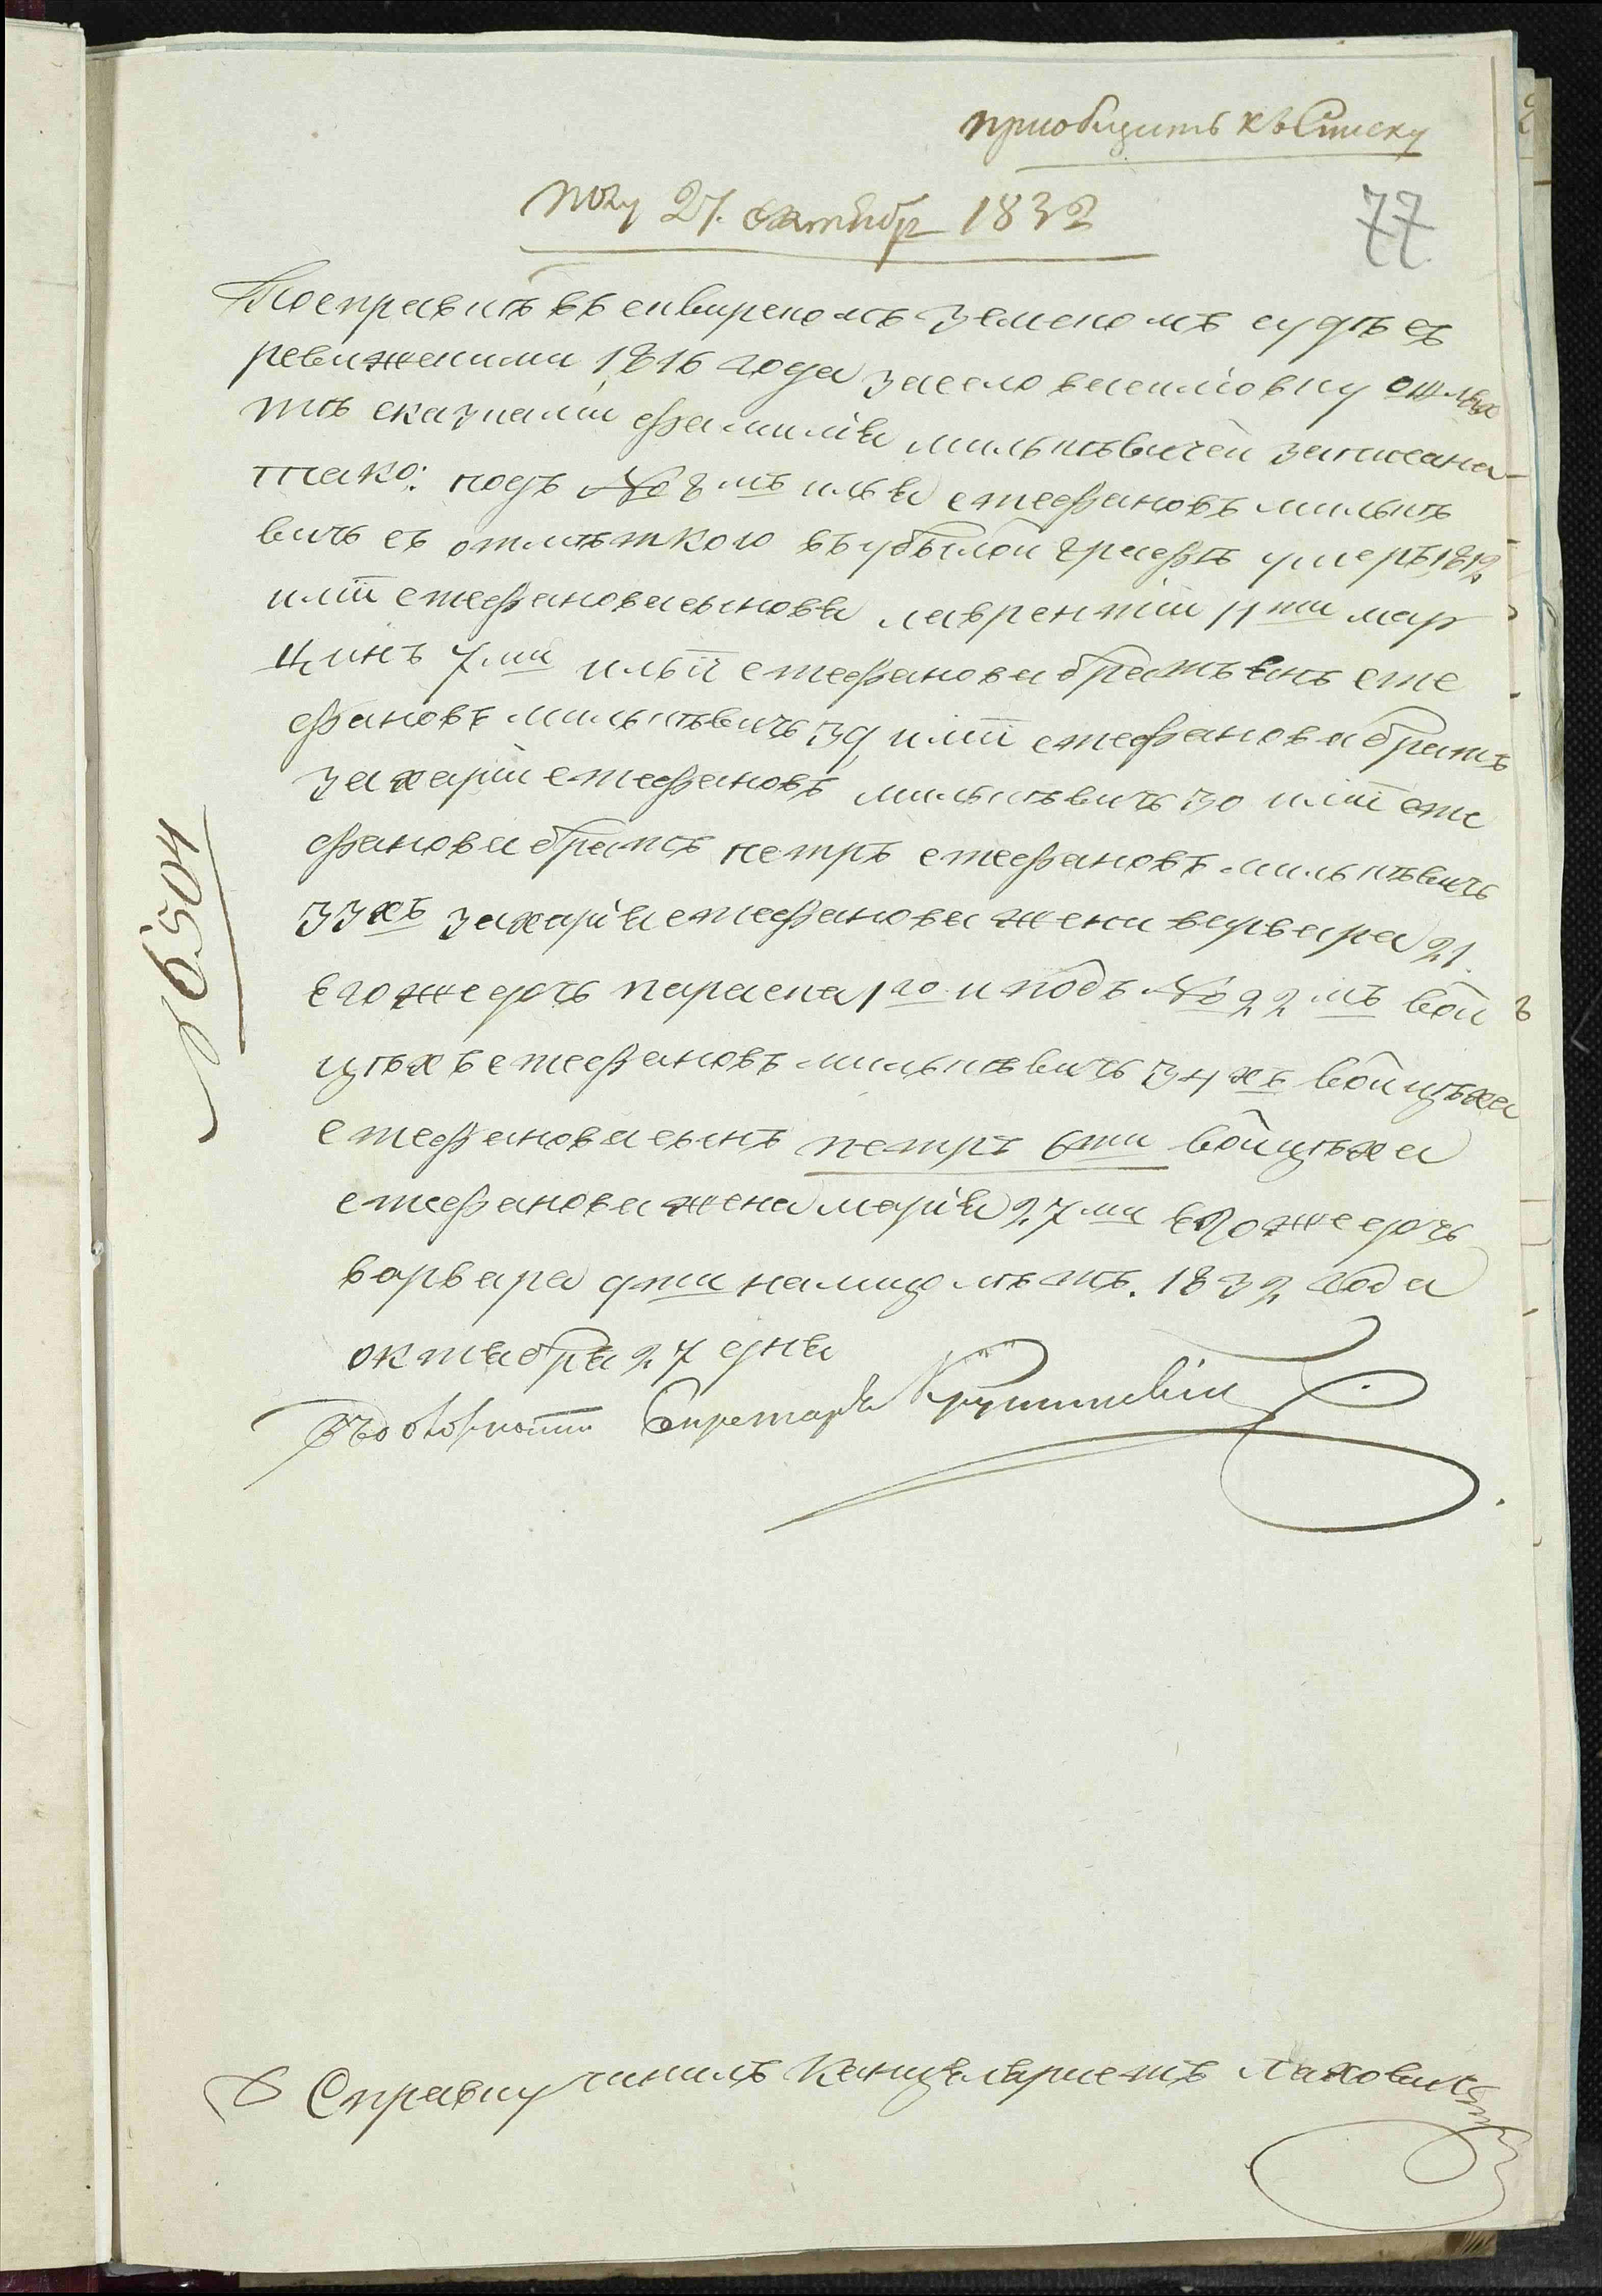 приобщить къ Списку
полу 27. октября 1832
77
По справкѣ въ сквирскомъ земскомъ судѣ съ
ревижскими 1816 года за село василіовку
скасками фамилія мильнѣвичей записана
тако: подъ № 8мъ илья стефановъ мильнѣ
вичь съ отмѣткою въ убылой графѣ умеръ 1812
иліи стефанова сыновья лаврентій 11ти мар
цинъ 7ми ильи стефанова братъ янъ сте
фановъ мильнѣвичь 39 иліи стефанова братъ
захарій стефановъ мильнѣвичь 30 иліи сте
фанова братъ петръ стефановъ мильнѣвичь
33хъ захарія стефанова жена варвара 21
его же дочь параска 1го и подъ № 22мъ вой
цѣхъ стефановъ мильнѣвичь 34хъ войцѣха
стефанова сынъ петръ 6ти войцѣха
стефанова жена марія 27ми его же дочь
варвара 9ти на лицо лѣтъ. 1832 года
октября 27 дня
Секретарь
№ 6504
Справку чинилъ Канцеляристъ Ляховецкій